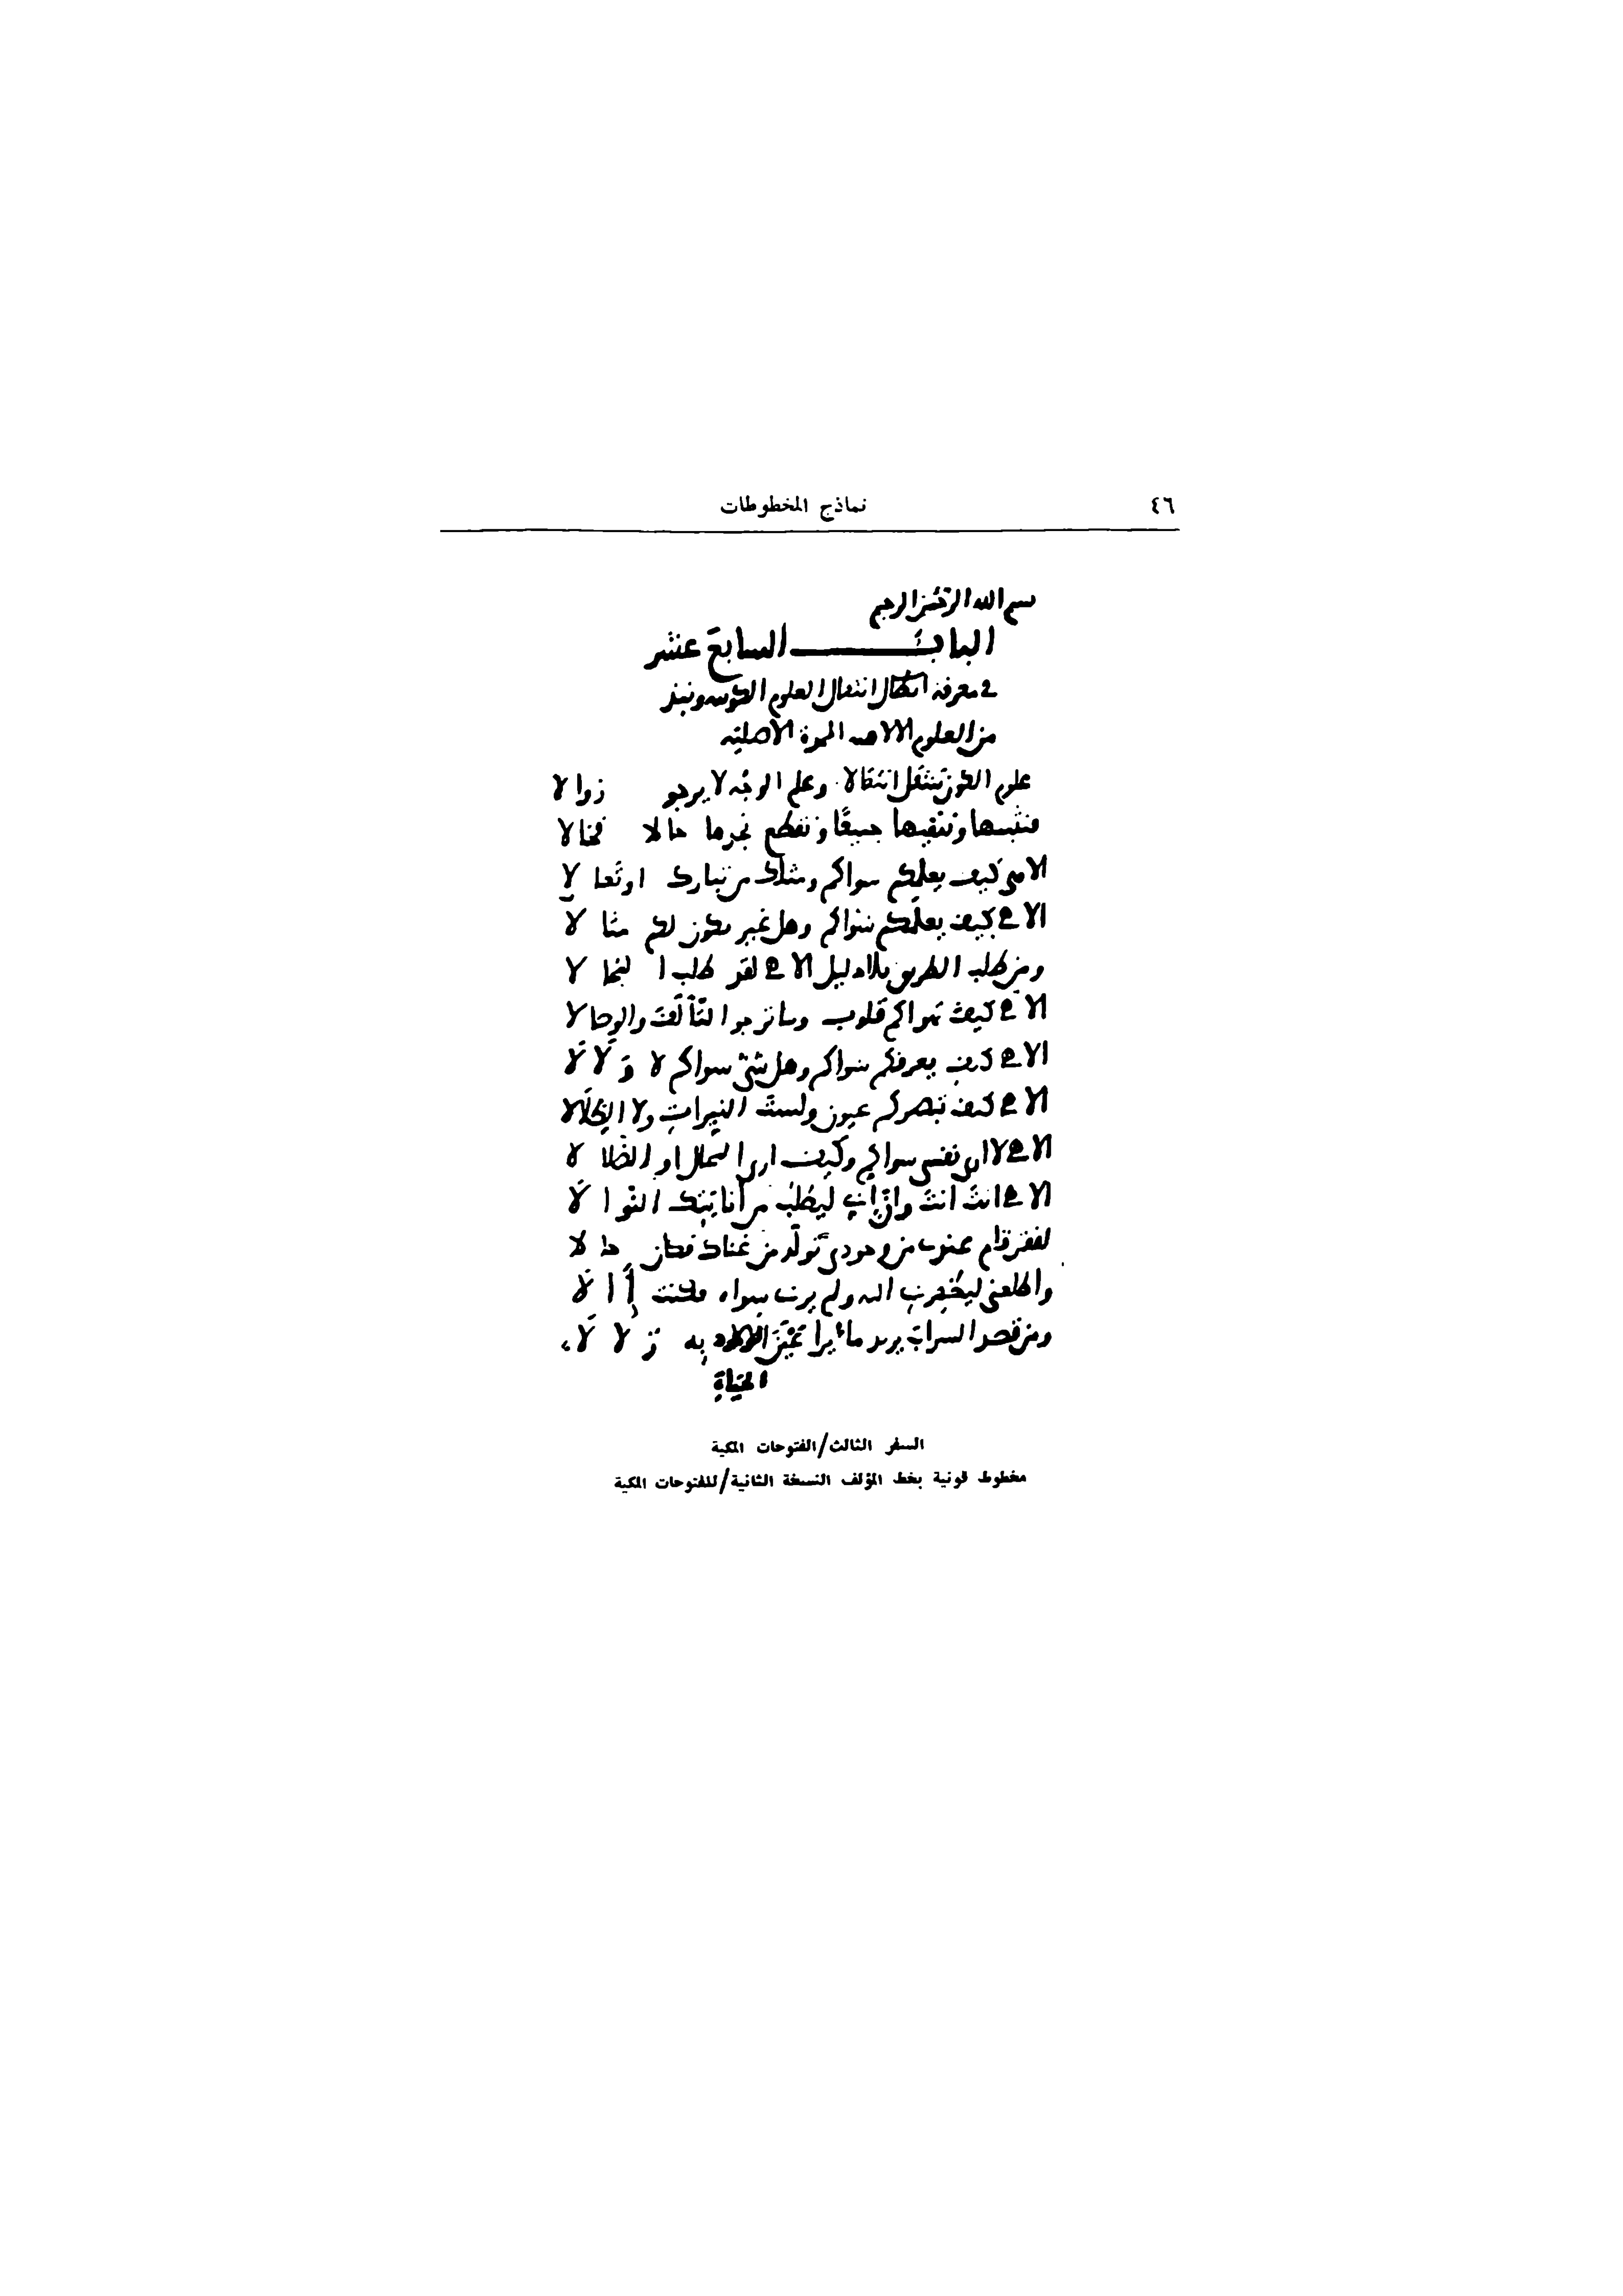 ٤٦ نماذج المخطوطات
بسم الله الرحمن الرحيم
الباب السابع عشر
في معرفة انتقال العلوم الكونيه ونبذ
من العلوم الالاهيه الممدة الاصليه
علوم الكون تنتقل انتقالا وعلم الوجه لا يرجو زوالا
فنثبتها وننفيها جميعًا ونقطع نجدها حالا فحالا
الاهي كيف يعلمكم سواكم ومثلك من تبارك او تعالا
الاهي كيف يعلمكم سواكم وهل غير يكون لكم مثالا
ومن طلب الطريق بلا دليل الاهي لقد طلب المحالا
الاهي كيف تهواكم قلوب وما ترجوا التألف والوصالا
الاهي كيف يعرفكم سواكم وهل شئ سواكم لا ولا لا
الاهي كيف تبصركم عيون ولست النيرات ولا الظلالا
الاهي لا ارى نفسي سواكم وكيف ارى المحال او الضلالا
الاهي انت انت وان اني ليطلب من أنايتك النوالا
لفقر قام عندي من وجودي تولد من غناك فكان حالا
واطلعني ليظهرني اليه ولم يرني سواه فكنت أالا
ومن قصد السراب يريد ماء يرا عين به زلالا
الحياة
السفر الثالث/الفتوحات المكية
مخطوط قونية بخط المؤلف النسخة الثانية/للفتوحات المكية